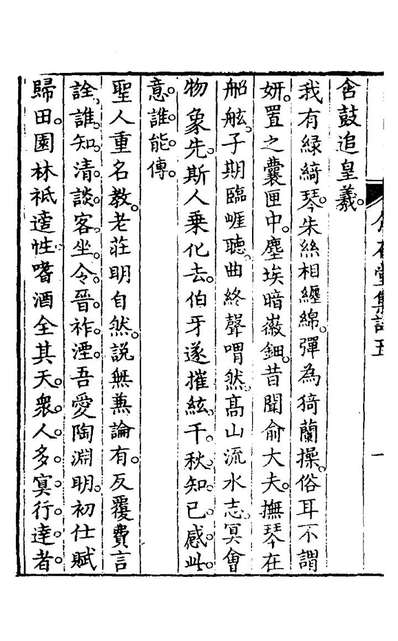 含鼓追皇羲。
我有綠綺琴。朱絲相纏綿。彈為猗蘭操。俗耳不謂
妍。置之囊匣中。塵埃暗嶶鈿。昔聞俞大夫。撫琴在
船舷。子期臨崕聽。曲終聲喟然。高山流水志。冥會
物象先。斯人乗化去。伯牙遂摧絃。千秋知已感。此
意誰能傳。
聖人重名教。老莊明自然。說無兼論有。反覆費言
詮。誰知清談客。坐令晉祚湮。吾愛陶淵明。初仕賦
歸田。園林祗適性。嗜酒全其天。衆人多寘行。達者
集詩五
一